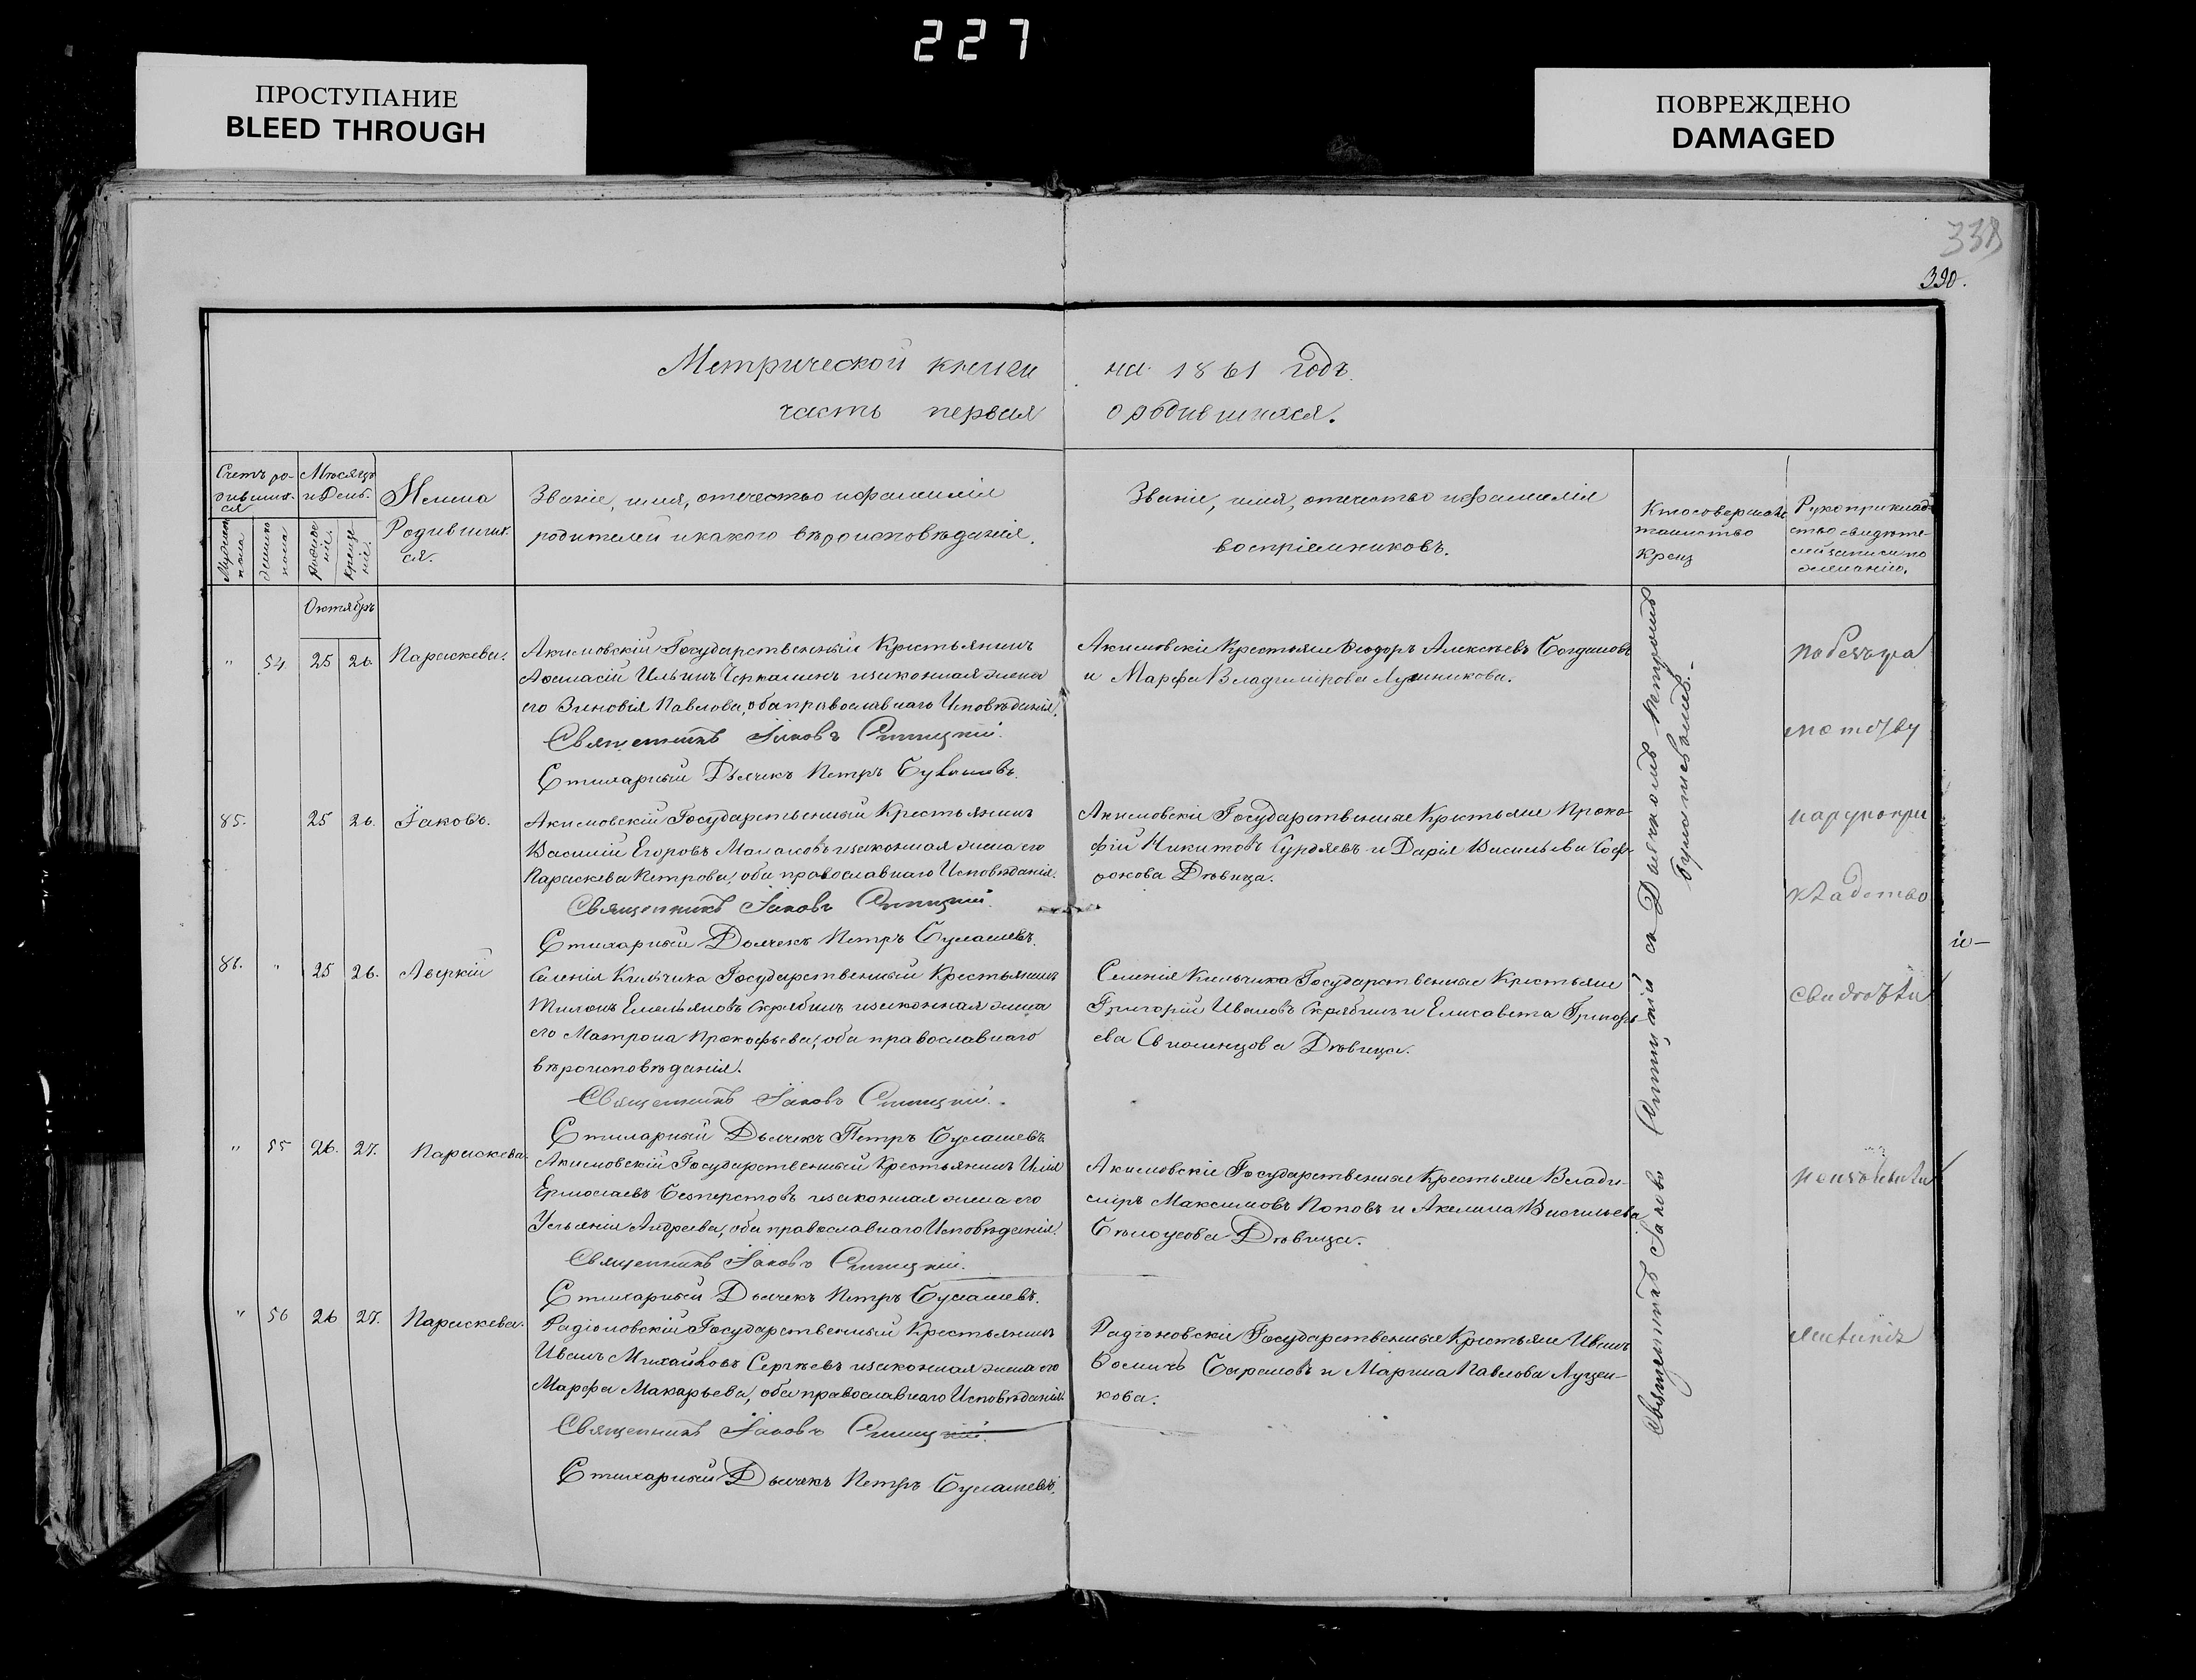 227
ПРОСТУПАНИЕ
BLEED THROUGH
ПОВРЕЖДЕНО
DAMAGED
338
390.
Метрической книги на 1861 годъ.
часть первая о родившихся.
Счетъ ро-
дивших-
ся
Мужеска
пола
женска
пола
Мѣсяцъ
и День.
Рожде
ніе.
Креще
ніе.
Имена
Родивших-
ся.
Званіе, имя, отечество и фамилія
родителей и какого вѣроисповѣданія.
Званіе, имя, отечество и фамилія
воспріемниковъ.
Кто совершалъ
таинство
Крещ
Рукоприклад
ство свидѣте-
лей записи по
желанію.
Октябрь
" 54 25 26 Параскева.
Акимовскій Государственный Крестьянинъ
Афанасій Ильинъ Черкашинъ и законная жена
его Зиновія Павлова, оба православнаго Исповѣданія.
Священникъ Іаковъ
Стихарный Дьячекъ Петръ Булашевъ.
Акимовскіе Крестьяне Феодоръ Алексѣевъ Богдановъ
и Марфа Владимірова Лушникова.
85. 25 26. Іаковъ.
Акимовскій Государственный Крестьянинъ
Василій Егоровъ и законная жена его
Параскева Петрова, оба православнаго Исповѣданія.
Священникъ Іаковъ
Стихарный Дьячекъ Петръ Булашевъ.
Акимовскіе Государственные Крестьяне Проко-
фій Никитовъ и Дарія Васильева Соф-
ронова Дѣвица.
86. " 25 26. Аверкій
Селенія Кильчика Государственный Крестьянинъ
Тихонъ Емельяновъ Скрябинъ и законная жена
его Матрона Прокофьева, оба православнаго
вѣроисповѣданія.
Священникъ Іаковъ
Стихарный Дьячекъ Петръ Булашевъ
Селенія Кильчика Государственные Крестьяне
Григорій Ивановъ Скрябинъ и Елисавета Григорь
ева Дѣвица.
" 55 26. 27. Параскева.
Акимовскій Государственный Крестьянинъ Илія
Ермолаевъ Безперстовъ и законная жена его
Ульянія Андреева, оба православнаго Исповѣданія.
Священникъ Іаковъ
Стихарный Дьячекъ Петръ Булашевъ.
Акимовскіе Государственные Крестьяне Влади-
міръ Максимовъ Поповъ и Акилина Васильева
Бѣлоусова Дѣвица.
" 56 26 27. Параскева.
Радіоновскій Государственный Крестьянинъ
Иванъ Михайловъ Сергѣевъ и законная жена его
Марфа Макарьева, оба православнаго Исповѣданія.
Священникъ Іаковъ
Стихарный Дьячекъ Петръ Булашевъ.
Радіоновскіе Государственные Крестьяне Иванъ
Фоминъ Барановъ и Марина Павлова Луцен-
кова.
Священникъ Іаковъ съ Дьячкомъ Петромъ
Булашевымъ.